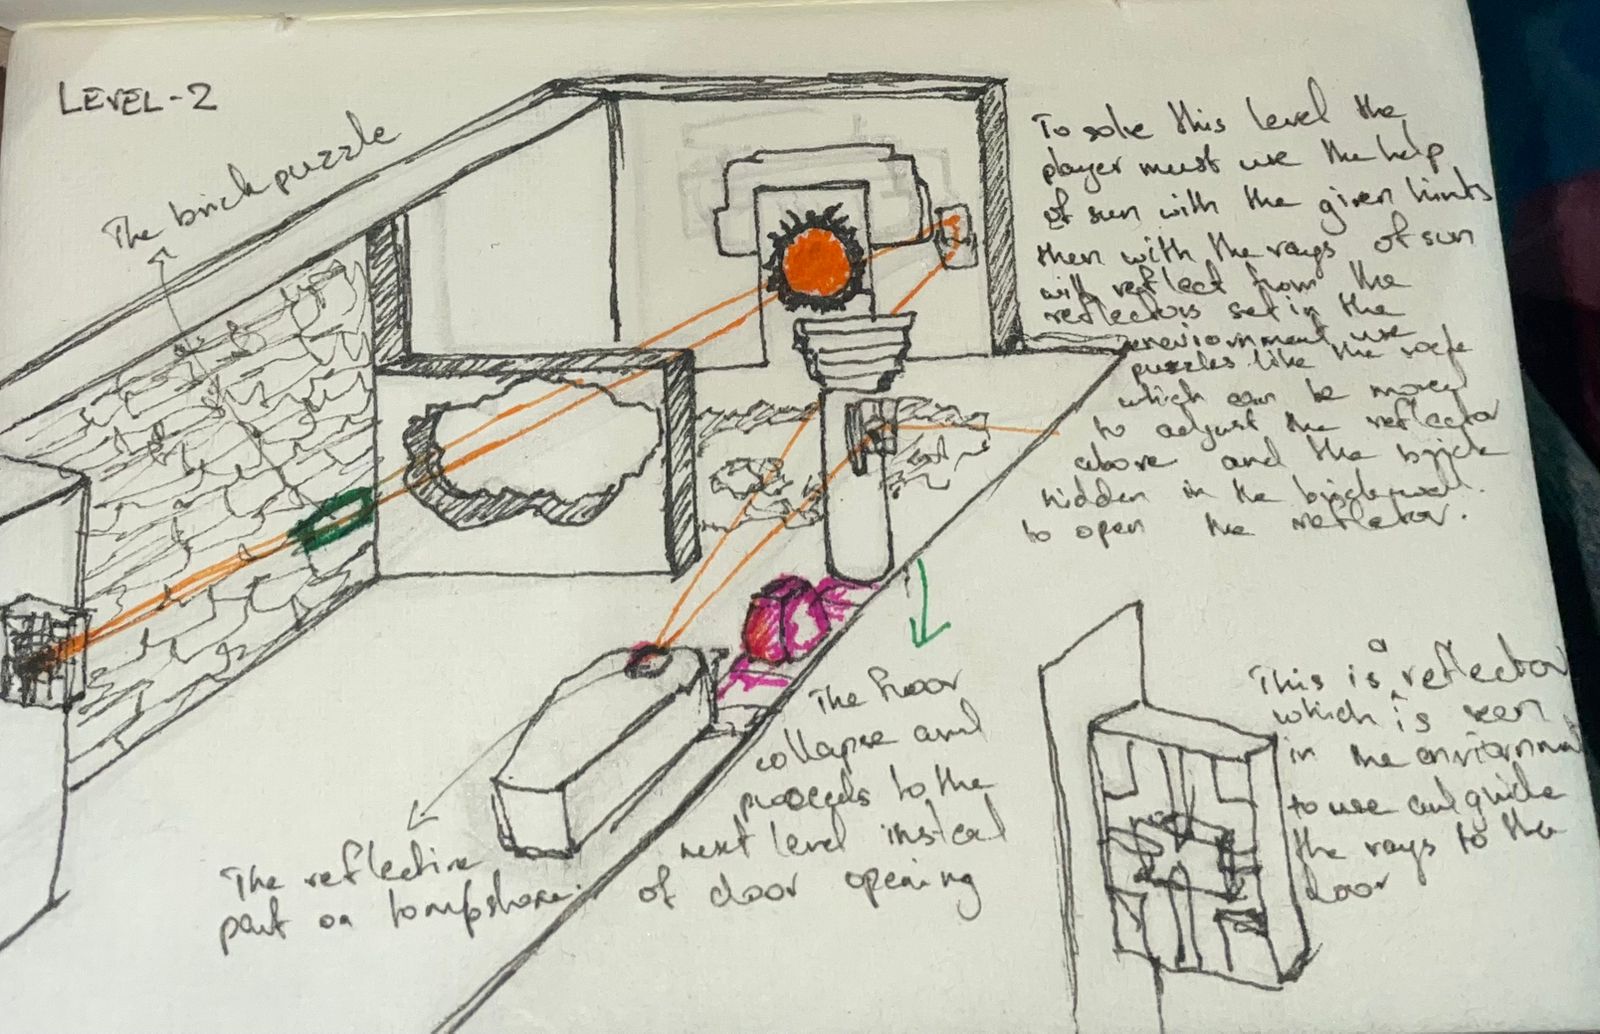 LEVEL-2
The brick puzzle
To solve this level the
player must use the help
of sun with the given hints
then with the rays of sun
will reflect from the
reflectors set in the
enviornment use
puzzles like the
which can be moved
to adjust the reflector
above and the brick
hidden in the brickwall.
to open the reflector.
The floor
collapse and
proceeds to the
next level instead
of door opening
The reflective
part on tombstone.
This is a reflector
which is seen
in the enviornment
to use and guide
the rays to the
door